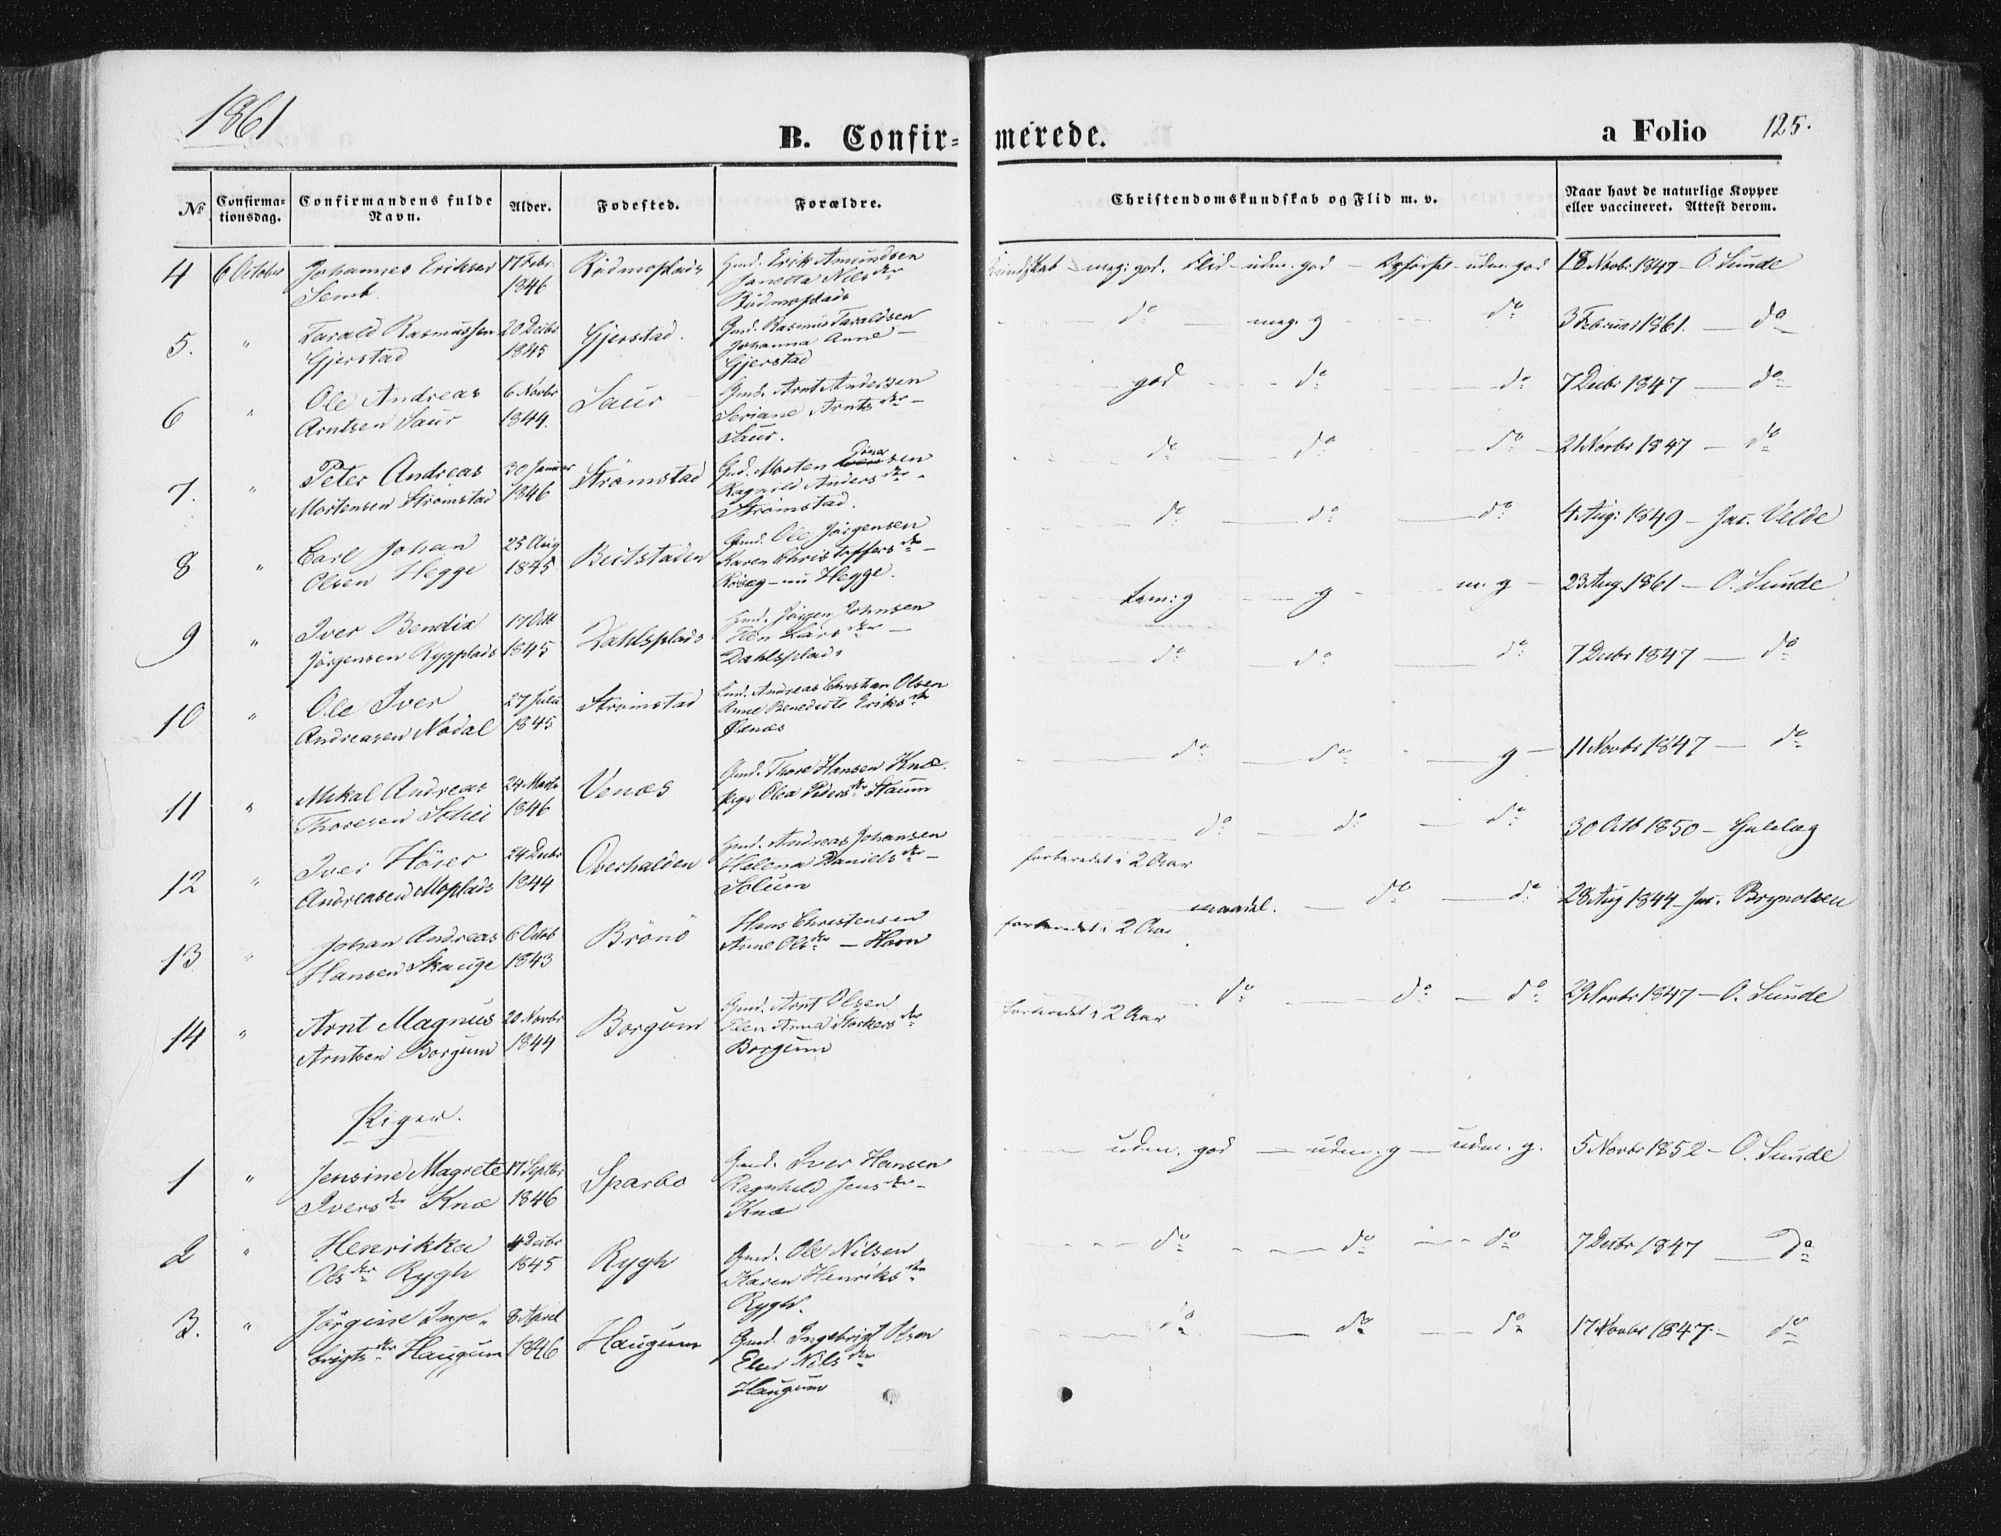 1861
B. Confir-merede.
a Folio 125.
No
Confirma-tionsdag.
Confirmandens fulde Navn.
Alder.
Fødested.
Forældre.
Christendomskundskab og Flid m. v.
Naar havt de naturlige Kopper eller vaccineret. Attest derom.
4 6 October Johannes Eriksen 17 Febr. Rødmoplads Gmd. Erik Amundsen Kundskab meg. god. Flid udm. god Opførsel udm. god 18 Novbr. 1847 - O. Sunde
Semb. 1846 Janetta Nilsdtr
Rødmoplads
5. " Tarald Rasmussen 20 Decbr Gjerstad. Gmd. Rasmus Taraldsen do meg. g do 3 Februar 1861. - do
Gjerstad 1845 Johanna Anne -
Gjerstad
6 " Ole Andreas 6 Novbr Saur Gmd. Arnt Andersen god do do 7 Decbr 1847 - do
Arntsen Saur 1844. Seriane Arntsdtr -
Saur.
7. " Peter Andreas 30 Januar Strømstad Gmd. Morten Jonassen do do do 21 Novbr 1847 - do
Mortensen Strømstad 1846 Ragnild Andersdtr.
Strømstad.
8 " Carl Johan 25 Aug Beitstaden Gmd. Ole Jørgensen do do do 4 Aug: 1849 - Jac. Velde
Olsen Hegge 1845 Karen Christoffersdtr -
nu Hegge.
9 " Iver Bendix 17 Octb Dahlsplads Gmd. Jørgen Johnsen tem: g g m. g 23 Aug. 1861 - O. Sunde
Jørgensen Rygplads 1845 Elen Larsdtr -
Dahlsplads
10 " Ole Iver 27 Juli Strømstad Gmd. Andreas Christian Olsen do do do 7 Decbr 1847 - do
Andreasen Nødal 1845 Anne Benedicte Eriksdtr
Øxnæs
11 " Mikal Andreas 24 Marts Venæs Gmd. Thore Hansen Knæ. do do g 11 Novbr 1847 - do
Thoresen Schei 1846 Pige Olea Pedersdtr Staum
12 " Iver Höier 24 Decbr Overhalden Gmd. Andreas Johansen do do do 30 Octb 1850 -
Andreasen Moplads 1844 Helena Danielsdtr - forberedet i 2 Aar
Solum
13 " Johan Andreas 6 Octob Brønø Hans Christensen maadel. do do 28 Aug 1844 - Jac. Brynolsen
Hansen Skauge 1843 Anne Olsdtr - Horn forberedet i 2 Aar
14 " Arnt Magnus 20 Novbr Borgum Gmd. Arnt Olsen do do do 29 Novbr 1847 - O. Sunde
Arntsen Borgum 1844 Elen Anna Storkersdtr forberedet i 2 Aar
Borgum
Piger.
1 " Jensine Magrete 17 Septbr Sparbo Gmd. Iver Hansen udm. god udm. g udm. g. 5 Novbr 1852 - O. Sunde
Iversdtr Knæ 1846 Ragnhild Jensdtr -
Knæ
2 " Henrikka 4 Decbr Rygh Gmd. Ole Nilsen do do do 7 Decbr 1847 - do
Olsdtr Rygh 1845 Karen Henriksdtr
Rygh.
3. " Jørgine Inge- 8 April Haugum Gmd. Ingebrigt Olsen do do do 17 Novbr 1847 - do
brigtsdtr Haugum 1846 Elen Nilsdtr
Haugum